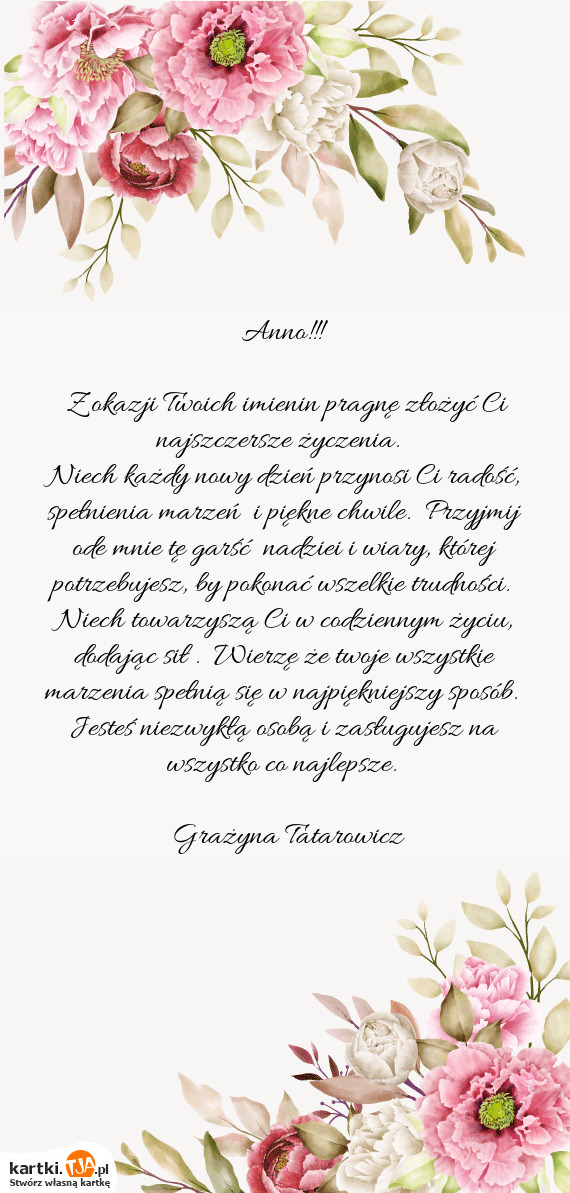 Anno!!!
Z okazji Twoich imienin pragnę złożyć Ci
najszczersze życzenia.
Niech każdy nowy dzień przynosi Ci radość,
spełnienia marzeń i piękne chwile. Przyjmij
ode mnie tę garść nadziei i wiary, której
potrzebujesz, by pokonać wszelkie trudności.
Niech towarzyszą Ci w codziennym życiu,
dodając sił . Wierzę że twoje wszystkie
marzenia spełnią się w najpiękniejszy sposób.
Jesteś niezwykłą osobą i zasługujesz na
wszystko co najlepsze.
Grażyna Tatarowicz
kartki.TJA.pl
Stwórz własną kartkę